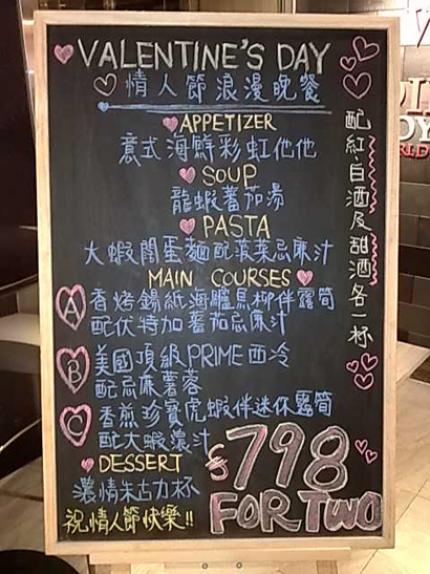 VALENTINE'S DAY
情人節浪漫晚餐
APPETIZER
意式海鮮彩虹他他
SOUP
龍蝦蕃茄湯
PASTA
大蝦闊蛋麵配菠菜忌廉汁
MAIN COURSES
A 香烤錫紙海鱸魚柳伴露筍
配伏特加蕃茄忌廉汁
B 美國頂級PRIME西冷
配忌廉薯蓉
C 香煎珍寶虎蝦伴迷你露筍
配大蝦濃汁
DESSERT
濃情朱古力杯
祝情人節快樂!!
$798
FOR TWO
配紅、白酒及甜酒各一杯